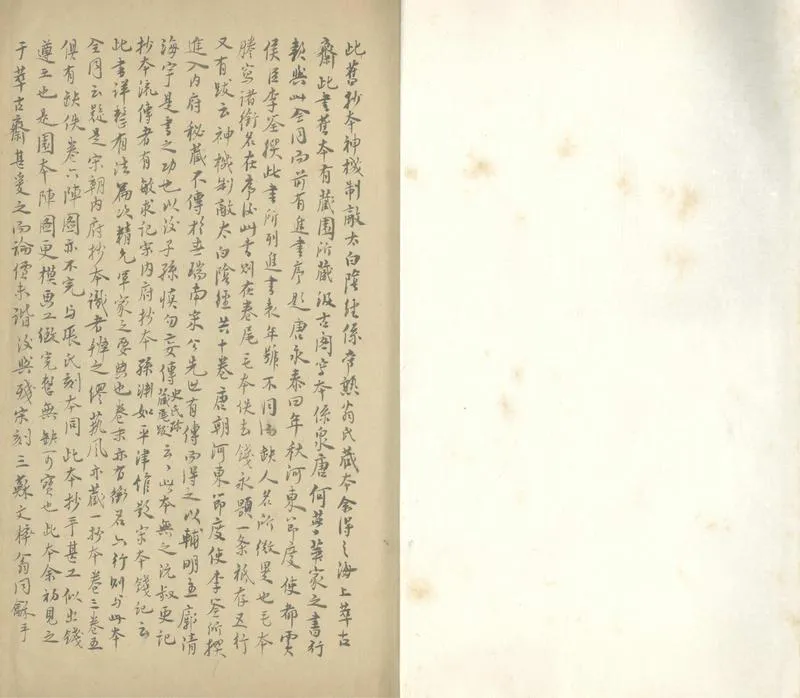 此舊抄本神機制敵太白陰經係常熟翁氏藏本余得之海上萃古
齋此書舊本有藏園所藏汲古閣寫本係泉唐何夢華家之書行
款與此全同而前有進書序題唐永泰四年秋河東節度使都虞
侯臣李筌撰此書所列進書表年號不同而缺人名所微異也毛本
謄寫諸銜名在序後此書則在卷尾毛本佚去錢永題一条祗存五行
又有跋云神機制敵太白陰經共十卷唐朝河東節度使李筌所撰
進入內府秘藏不傳於世端南宋分先世有傳而得之以輔明主廓清
海宇是書之功也以汝子孫慎勿妄傳史氏珍藏惠跋云云此本無之沅叔更記
抄本流傳者有敏求記宋內府抄本孫淵如平津館影宋本錢記云
此書詳整有法篇次精允軍家之要典也卷末亦有銜名六行則与此本
全同云疑是宋朝內府抄本識者辨之繆藝風亦藏一抄本卷三卷五
俱有缺佚卷六陣圖亦不完与張氏刻本同此本抄手甚工似出錢
遵王也是園本陣圖更模画工緻完整無缺可寶也此本余初見之
于萃古齋甚愛之而論價未諧後與殘宋刻三蘇文粹翁同龢手